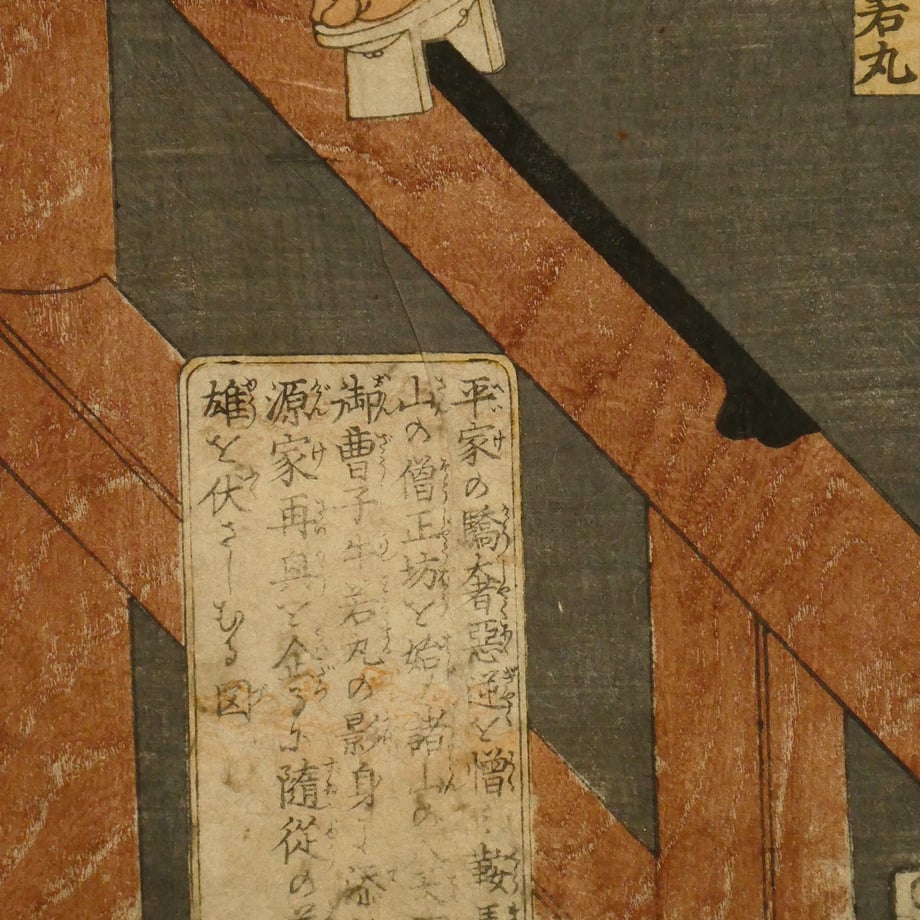 若丸
平家の驕奢悪逆を憎み鞍馬
山の僧正坊を始め諸山の
御曹子牛若丸の影身に添
源家再興を企るに随従の
雄を伏さしむる図